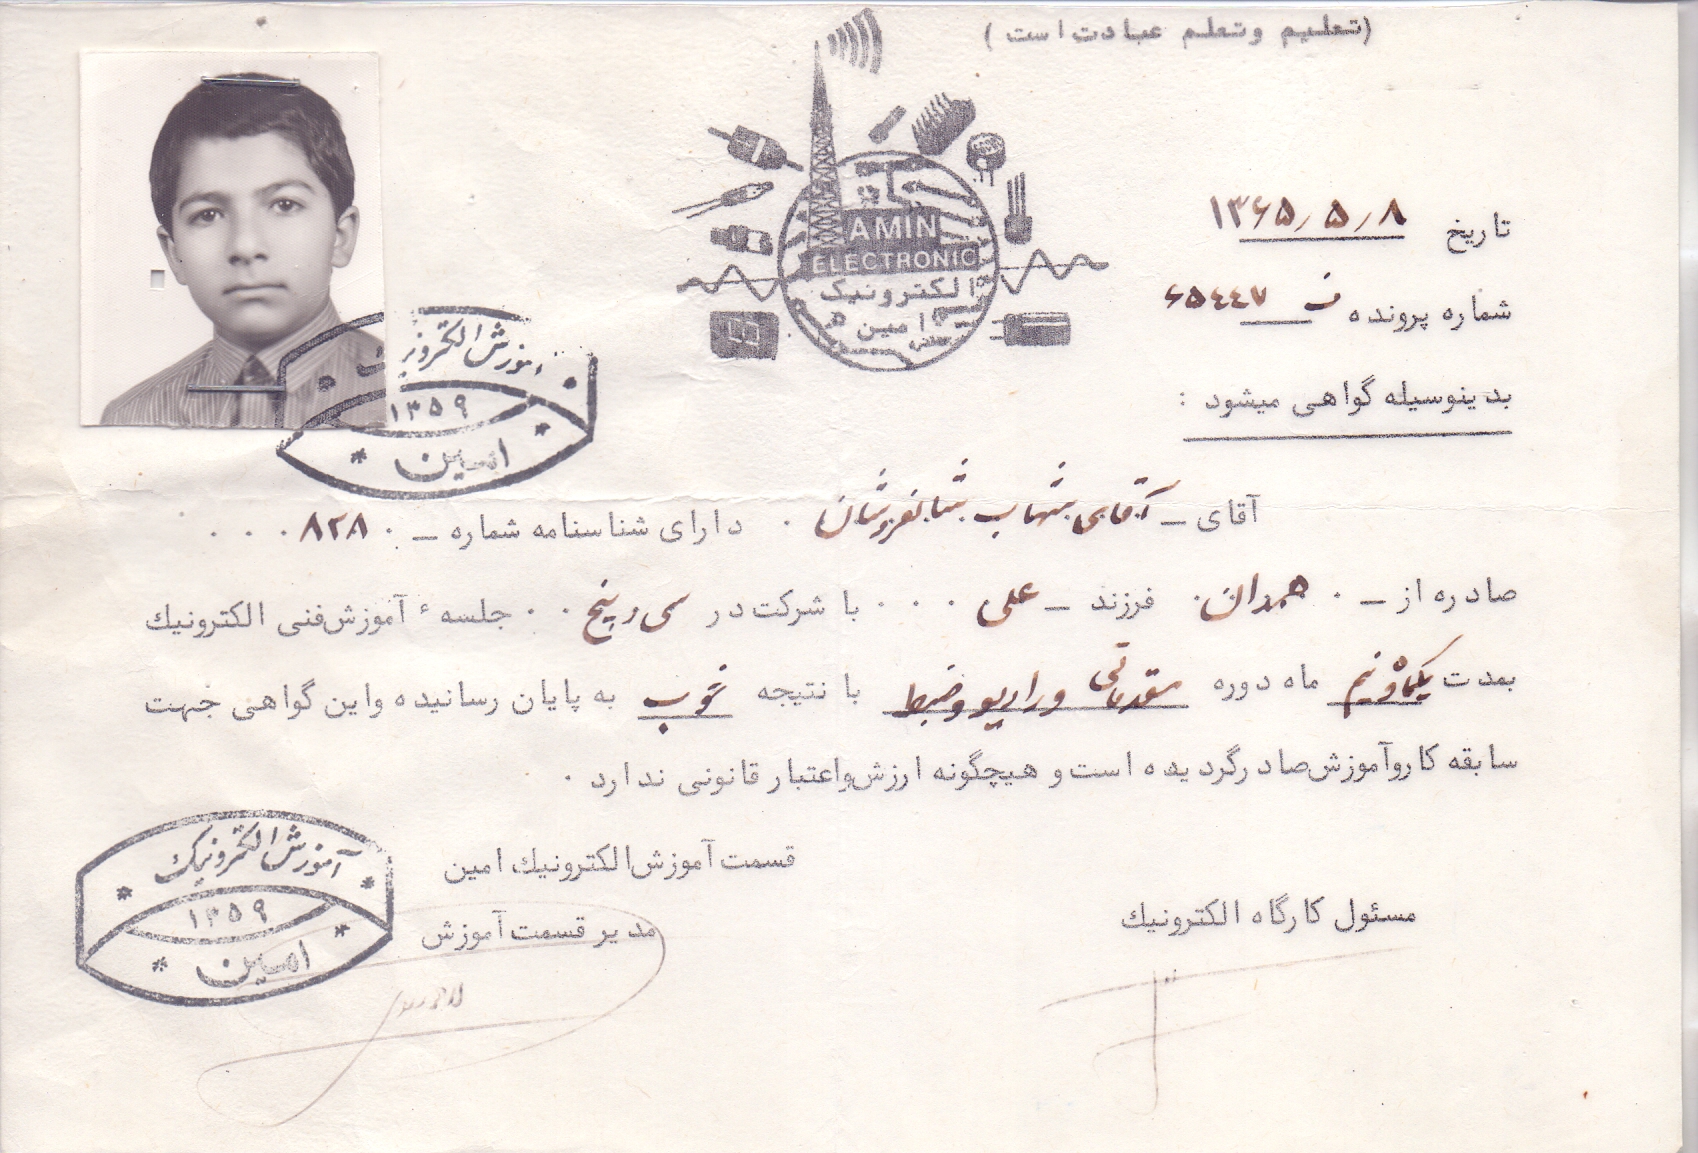 (تعلیم وتعلم عبادت است)
AMIN
ELECTRONIC
الکترونیک
امین
تاریخ ۱۳۶۵/۵/۸
شماره پرونده ف ۶۵۴۴۷
بدینوسیله گواهی میشود :
آموزش الکترونیک
۱۳۵۹
امین
آقای ـ آقای شهاب شانفروشان ۰ دارای شناسنامه شماره ـ ۰ ۸۲۸ ۰ ۰ ۰
صادره از ـ ۰ همدان ۰ فرزند ـ علی ۰ ۰ ۰ با شرکت در سی و پنج ۰ ۰ جلسه ٔ آموزش فنی الکترونیك
بمدت یکماه و نیم ماه دوره مقدماتی و رادیو و ضبط با نتیجه خوب به پایان رسانیده واین گواهی جهت
سابقه کاروآموزش صادرگردیده است و هیچگونه ارزش واعتبار قانونی ندارد ۰
قسمت آموزش الکترونیك امین
مسئول کارگاه الکترونیك
مدیر قسمت آموزش
آموزش الکترونیک
۱۳۵۹
امین